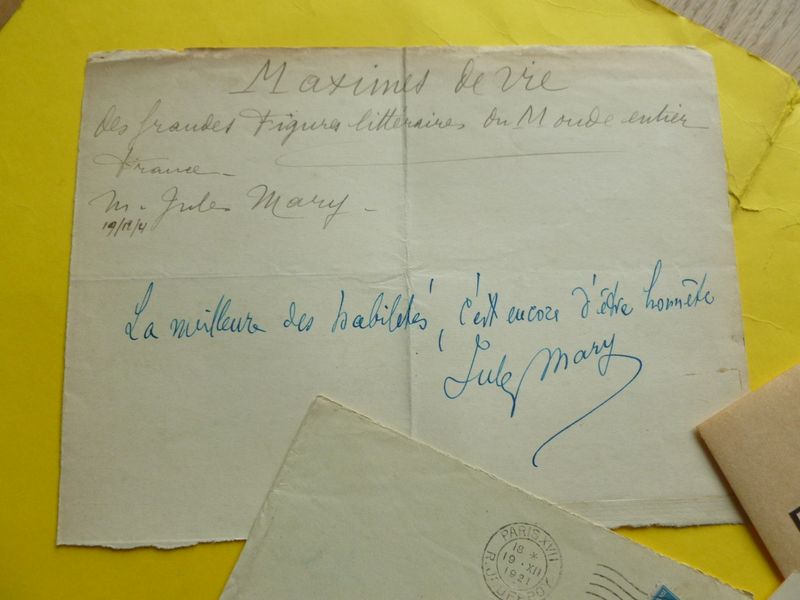 Maximes de vie
des Grandes Figures littéraires du Monde entier
France -
M. Jules Mary -
La meilleure des habiletés, c'est encore d'être honnête
Jules Mary
PARIS XVII
18 *
19 · XII
1921